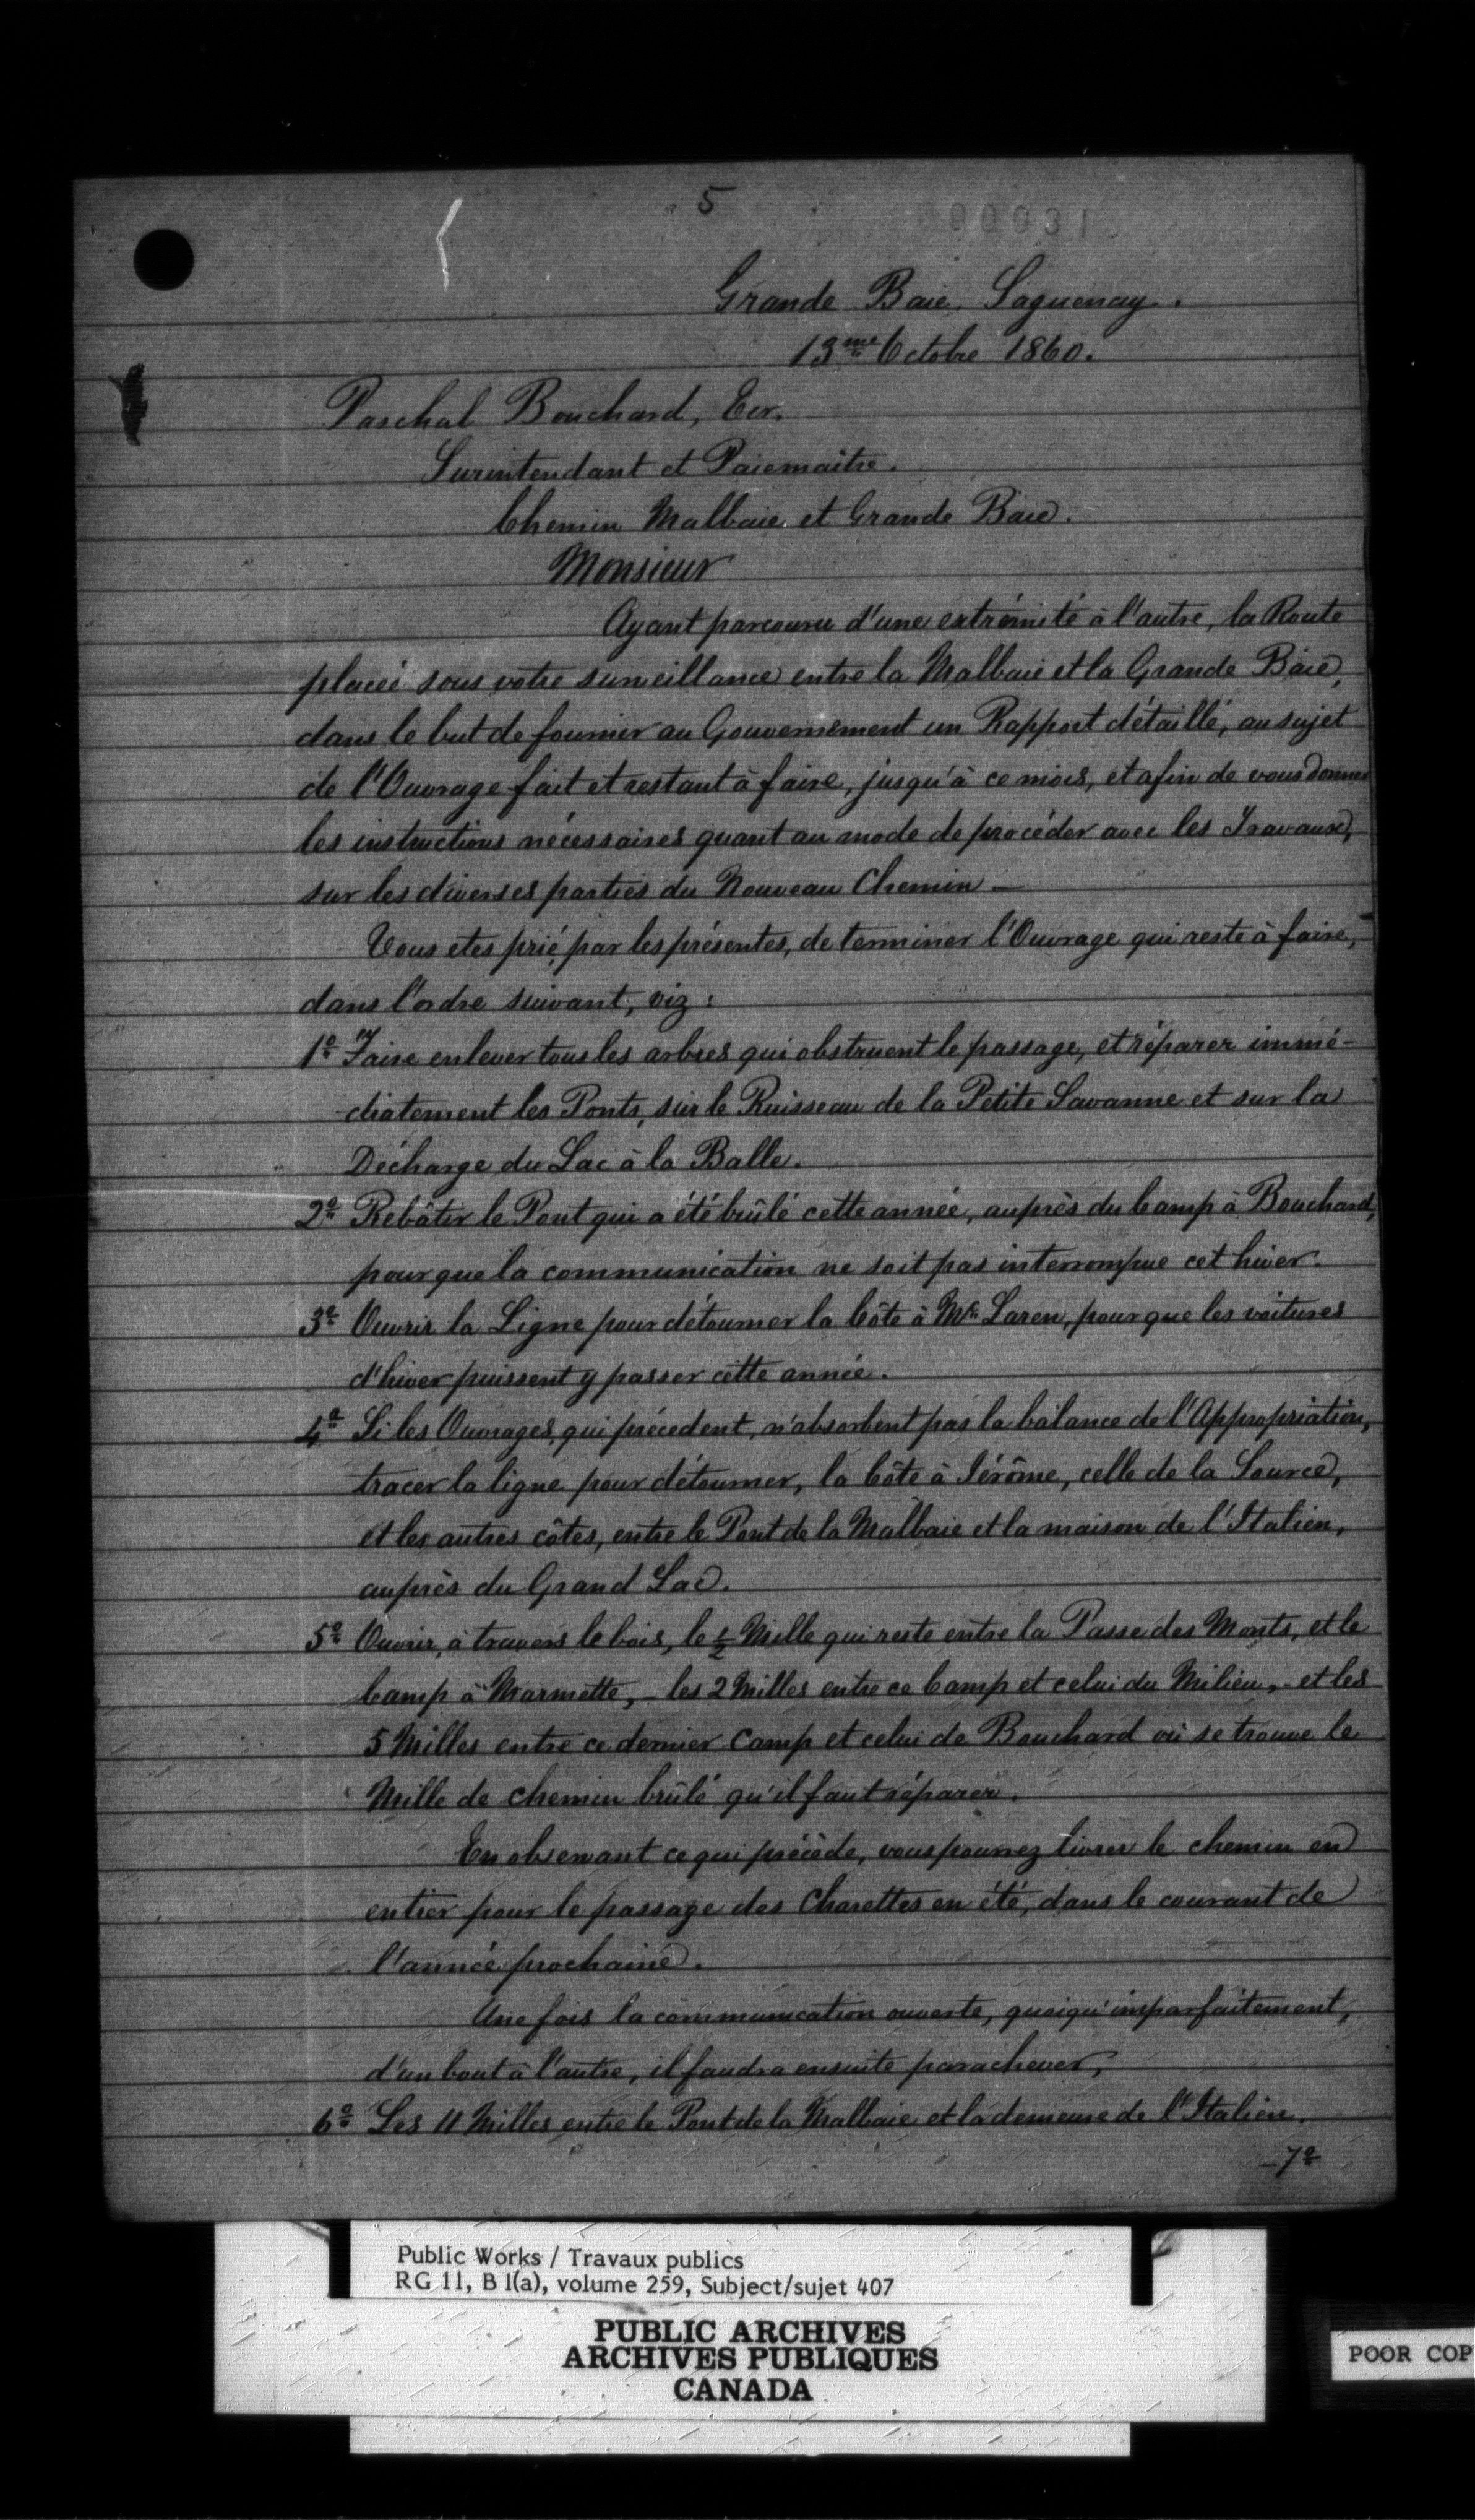 5
000031
Grande Baie, Saguenay.
13me Octobre 1860.
Paschal Bouchard, Ecr.
Surintendant et Paiemaître.
Chemin Malbaie et Grande Baie.
Monsieur
Ayant parcouru d'une extrémité à l'autre, la Route
placée sous votre surveillance entre la Malbaie et la Grande Baie,
dans le but de fournir au Gouvernement un Rapport détaillé, au sujet
de l'Ouvrage fait et restant à faire, jusqu'à ce mois, et afin de vous donner
les instructions nécessaires quant au mode de procéder avec les Travaux,
sur les diverses parties du Nouveau Chemin –
Vous etes prié, par les présentes, de terminer l'Ouvrage qui reste à faire,
dans l'ordre suivant, viz:
1o Faire enlever tous les arbres qui obstruent le passage, et réparer immé-
-diatement les Ponts, sur le Ruisseau de la Petite Savanne et sur la
Décharge du Lac à la Balle.
2o Rebâtir le Pont qui a été brûlé cette année, auprès du Camp à Bouchard,
pour que la communication ne soit pas interrompue cet hiver.
3o Ouvrir la Ligne pour détourner la Côte à Mc Laren, pour que les voitures
d'hiver puissent y passer cette année.
4o Si les Ouvrages, qui précedent, n'absorbent pas la balance de l'Appropriation,
tracer la ligne pour détourner, la Côte à Jérôme, celle de la Source,
et les autres côtes, entre le Pont de la Malbaie et la maison de l'Italien,
auprès du Grand Lac.
5o Ouvrir, à travers le bois, le 1/2 Mille qui reste entre la Passe des Monts, et le
Camp à Marmette, – les 2 Milles entre ce Camp et celui du Milieu, – et les
5 Milles entre ce dernier Camp et celui de Bouchard où se trouve le
Mille de chemin brûlé qu'il faut réparer.
En observant ce qui précède, vous pourrez livrer le chemin en
entier pour le passage des Charettes en été, dans le courant de
l'année prochaine.
Une fois la communication ouverte, quoiqu'imparfaitement,
d'un bout à l'autre, il faudra ensuite parachever,
6o Les 11 Milles entre le Pont de la Malbaie et la demeure de l'Italien.
– 7o
Public Works / Travaux publics
RG 11, B 1(a), volume 259, Subject/sujet 407
PUBLIC ARCHIVES
ARCHIVES PUBLIQUES
CANADA
POOR COP